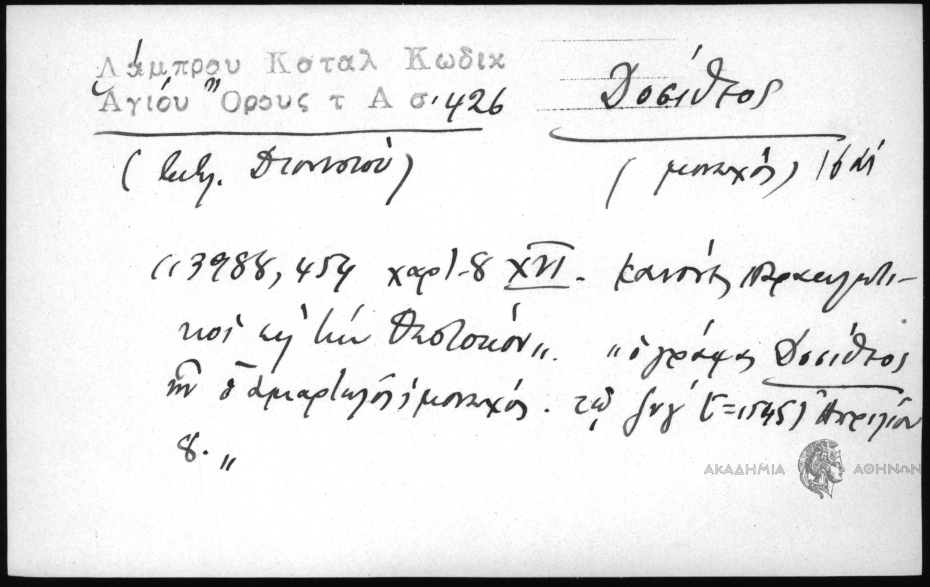 Λάμπρου Καταλ Κωδικ
Ἁγίου Ὄρους τ Α σ. 426
Δοσίθεος
(Εκκλ. Διονυσίου)
(μοναχός) 16 αἰ
"3988, 454 χαρτ. 8 XVI. Κανόνες παρακλητι-
κοὶ εἰς τὴν Θεοτόκον". "ὁ γράψας Δοσίθεος
ἦν ὁ ἁμαρτωλός, μοναχός. τῷ ζνγ' (=1545) Ἀπριλίου
8."
ΑΚΑΔΗΜΙΑ ΑΘΗΝΩΝ